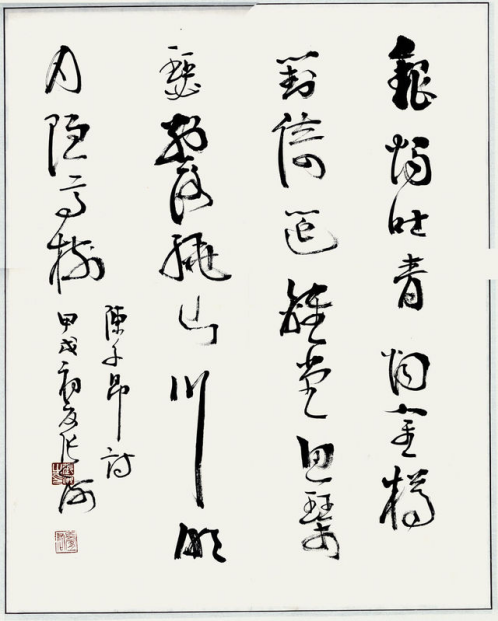 銀燭吐青烟金樽
對綺筵離堂思琴
瑟別路繞山川明
月隱高樹
陳子昂詩
甲戌初夏